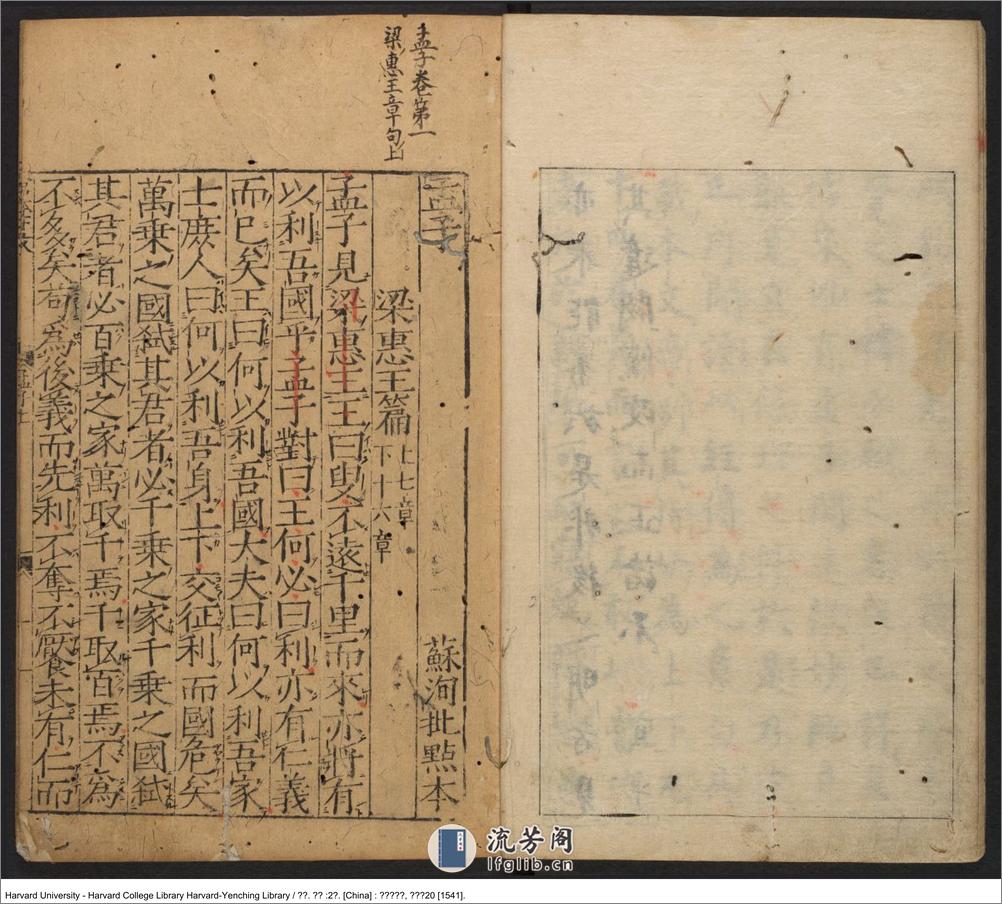 孟子卷第一
梁惠王章句上
孟子 蘇洵批點本
梁惠王篇 上七章 下十六章
孟子見梁惠王王曰叟不遠千里而來亦將有
以利吾國乎孟子對曰王何必曰利亦有仁義
而已矣王曰何以利吾國大夫曰何以利吾家
士庶人曰何以利吾身上下交征利而國危矣
萬乘之國弑其君者必千乘之家千乘之國弑
其君者必百乘之家萬取千焉千取百焉不為
不多矣苟為後義而先利不奪不饜未有仁而
流芳阁
lfglib.cn
Harvard University - Harvard College Library Harvard-Yenching Library / ??. ?? :2?. [China] : ?????, ???20 [1541].